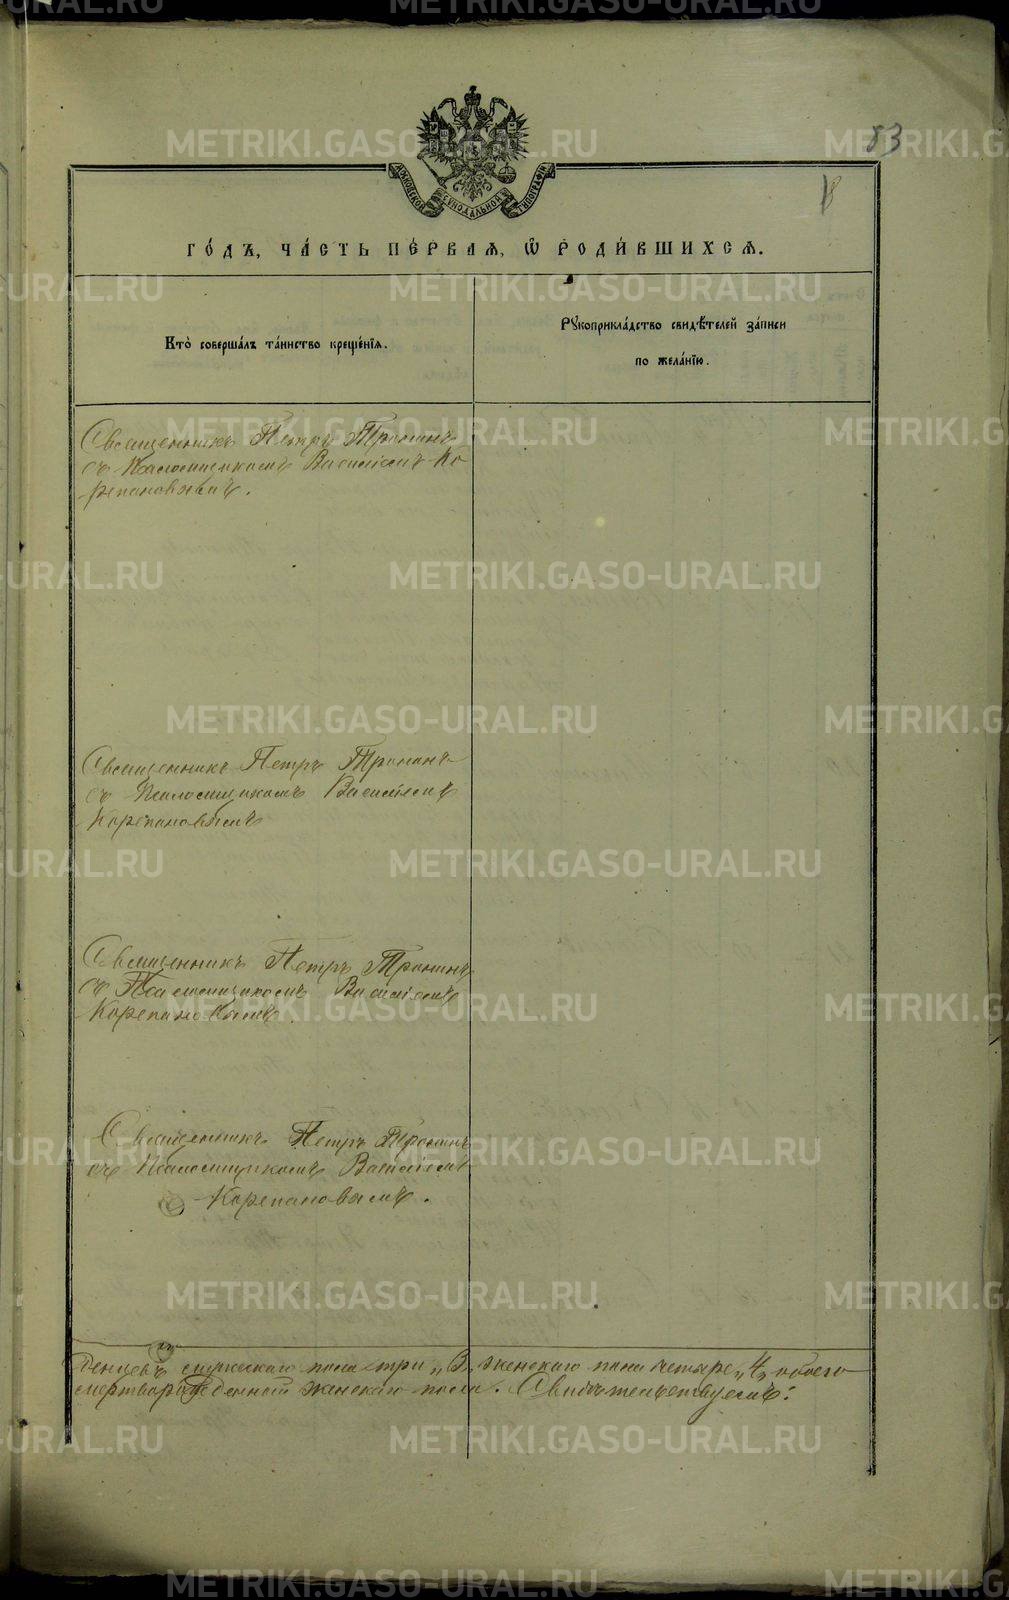 83
8
МОСКОВСКОЙ СѴНОДАЛЬНОЙ ТИПОГРАФІИ
ГО́ДЪ, ЧА́СТЬ ПЕ́РВАЯ, Ѡ҆ РОДИ́ВШИХСЯ.
Кто̀ соверша́лъ та́инство креще́нїя.
Рꙋкоприкла́дство свидѣ́телей за́писи
по жела́нїю.
Священникъ Петръ Тронинъ
съ Псаломщикомъ Василіемъ Ко
репановымъ.
Священникъ Петръ Тронинъ
съ Псаломщикомъ Василіемъ
Корепановымъ
Священникъ Петръ Тронинъ
съ Псаломщикомъ Василіемъ
Корепановымъ
Священникъ Петръ Тронинъ
съ Псаломщикомъ Василіемъ
Корепановымъ.
денцевъ мужескаго пола три „3„ женскаго пола четыре „4„ обоего
мертворожденный женскаго пола. Свидѣтельствуемъ:
METRIKI.GASO-URAL.RU